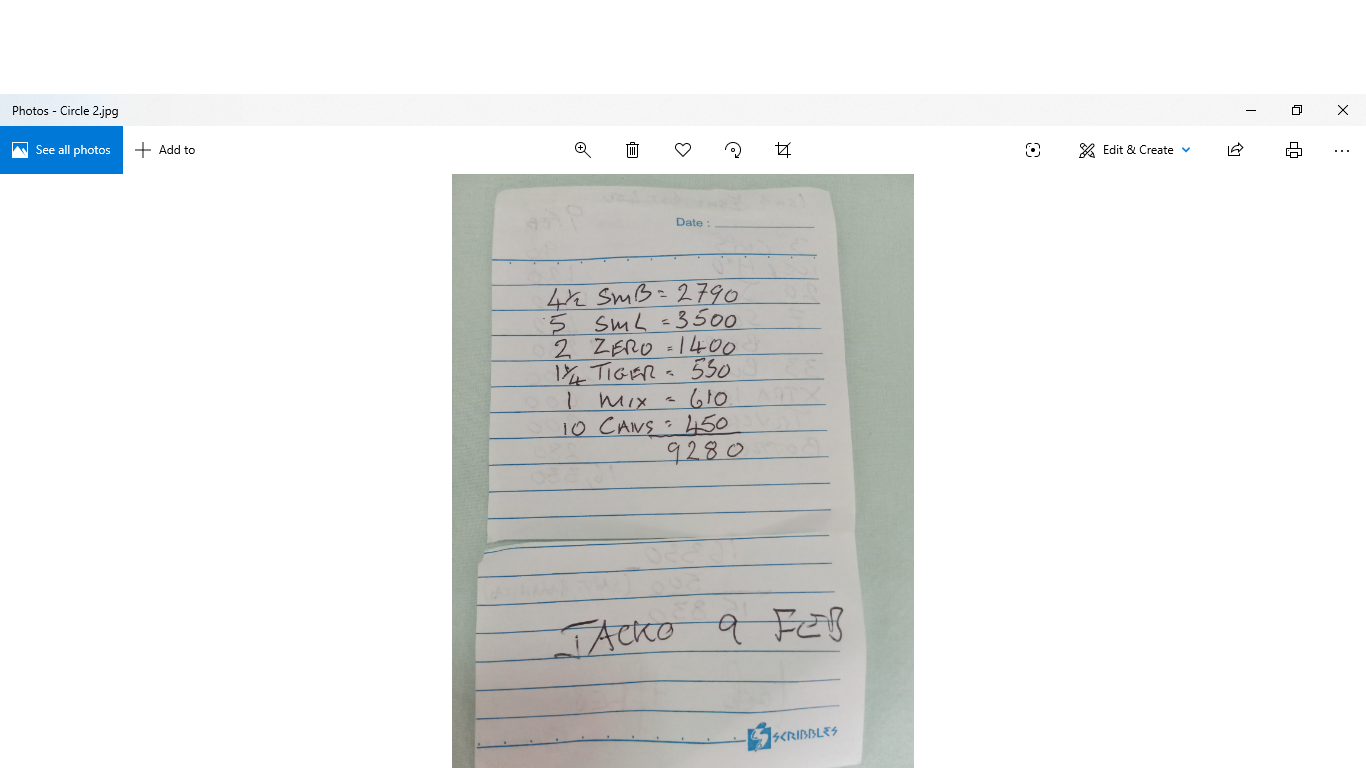 Photos - Circle 2.jpg
See all photos
Add to
Edit & Create
Date :
4½ SmB = 2790
5 SmL = 3500
2 ZERO = 1400
1¼ TIGER = 530
1 mix = 610
10 CANS = 450
9280
JACKO 9 FEB
SCRIBBLES